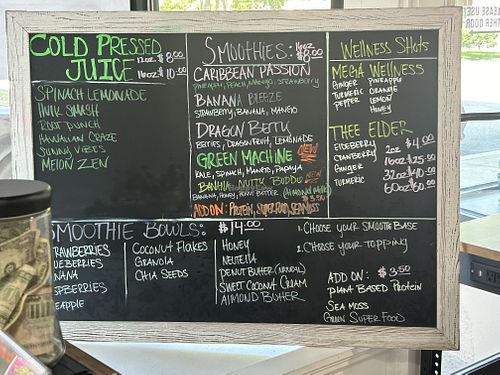 COLD PRESSED
JUICE
12oz $8.00
16oz $10.00
SPINACH LEMONADE
HULK SMASH
ROOT PUNCH
HAWAIIAN CRAZE
SUNNY VIBES
MELON ZEN
SMOOTHIES: 16oz $8.00
CARIBBEAN PASSION
PINEAPPLE, PEACH, MANGO, STRAWBERRY
BANANA BREEZE
STRAWBERRY, BANANA, MANGO
DRAGON BERRY
BERRIES, DRAGON FRUIT, LEMONADE
GREEN MACHINE NEW
KALE, SPINACH, MANGO, PAPAYA
BANANA NUTTY BUDDY NEW
BANANA, HONEY, PENUT BUTTER (ALMOND MILK)
ADD ON: PROTEIN, SUPERFOOD, SEAMOSS
WELLNESS SHOTS
MEGA WELLNESS
GINGER PINEAPPLE
TURMERIC ORANGE
PEPPER LEMON
HONEY
THEE ELDER
ELDERBERRY 2oz $4.00
CRANBERRY 16oz $25.00
GINGER 32oz $40.00
TURMERIC 60oz $60.00
SMOOTHIE BOWLS: $14.00
STRAWBERRIES
UEBERRIES
NANA
SPBERRIES
EAPPLE
COCONUT FLAKES
GRANOLA
CHIA SEEDS
HONEY
NUTELLA
PENUT BUTTER (NATURAL)
SWEET COCONUT CREAM
ALMOND BUTTER
1. CHOOSE YOUR SMOOTH BASE
2. CHOOSE YOUR TOPPING
ADD ON: $3.50
PLANT BASED PROTEIN
SEA MOSS
GREEN SUPER FOOD
LEASE USE
OTHER DOOR